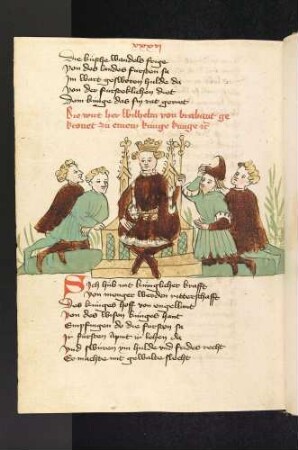 xxxvj
Die küsche wandels frige
Von des landes fursten sü
Im wart gesworen hulde da
Von der furstelichen diet
Dem kunige das sy rat geriet
Hie wirt her wilhelm von brabant ge
kronet zü einem kunige
Sich hüb mit kunglicher krafft
Von manger werden ritterschafft
Des kuniges hoff von engellant
Von des wisen kuniges hant
Empfingen do die fursten sü
Ir fursten ampt ir lehen da
Vnd swüren im hulde vnd frides recht
Er machte mit gewalte slecht